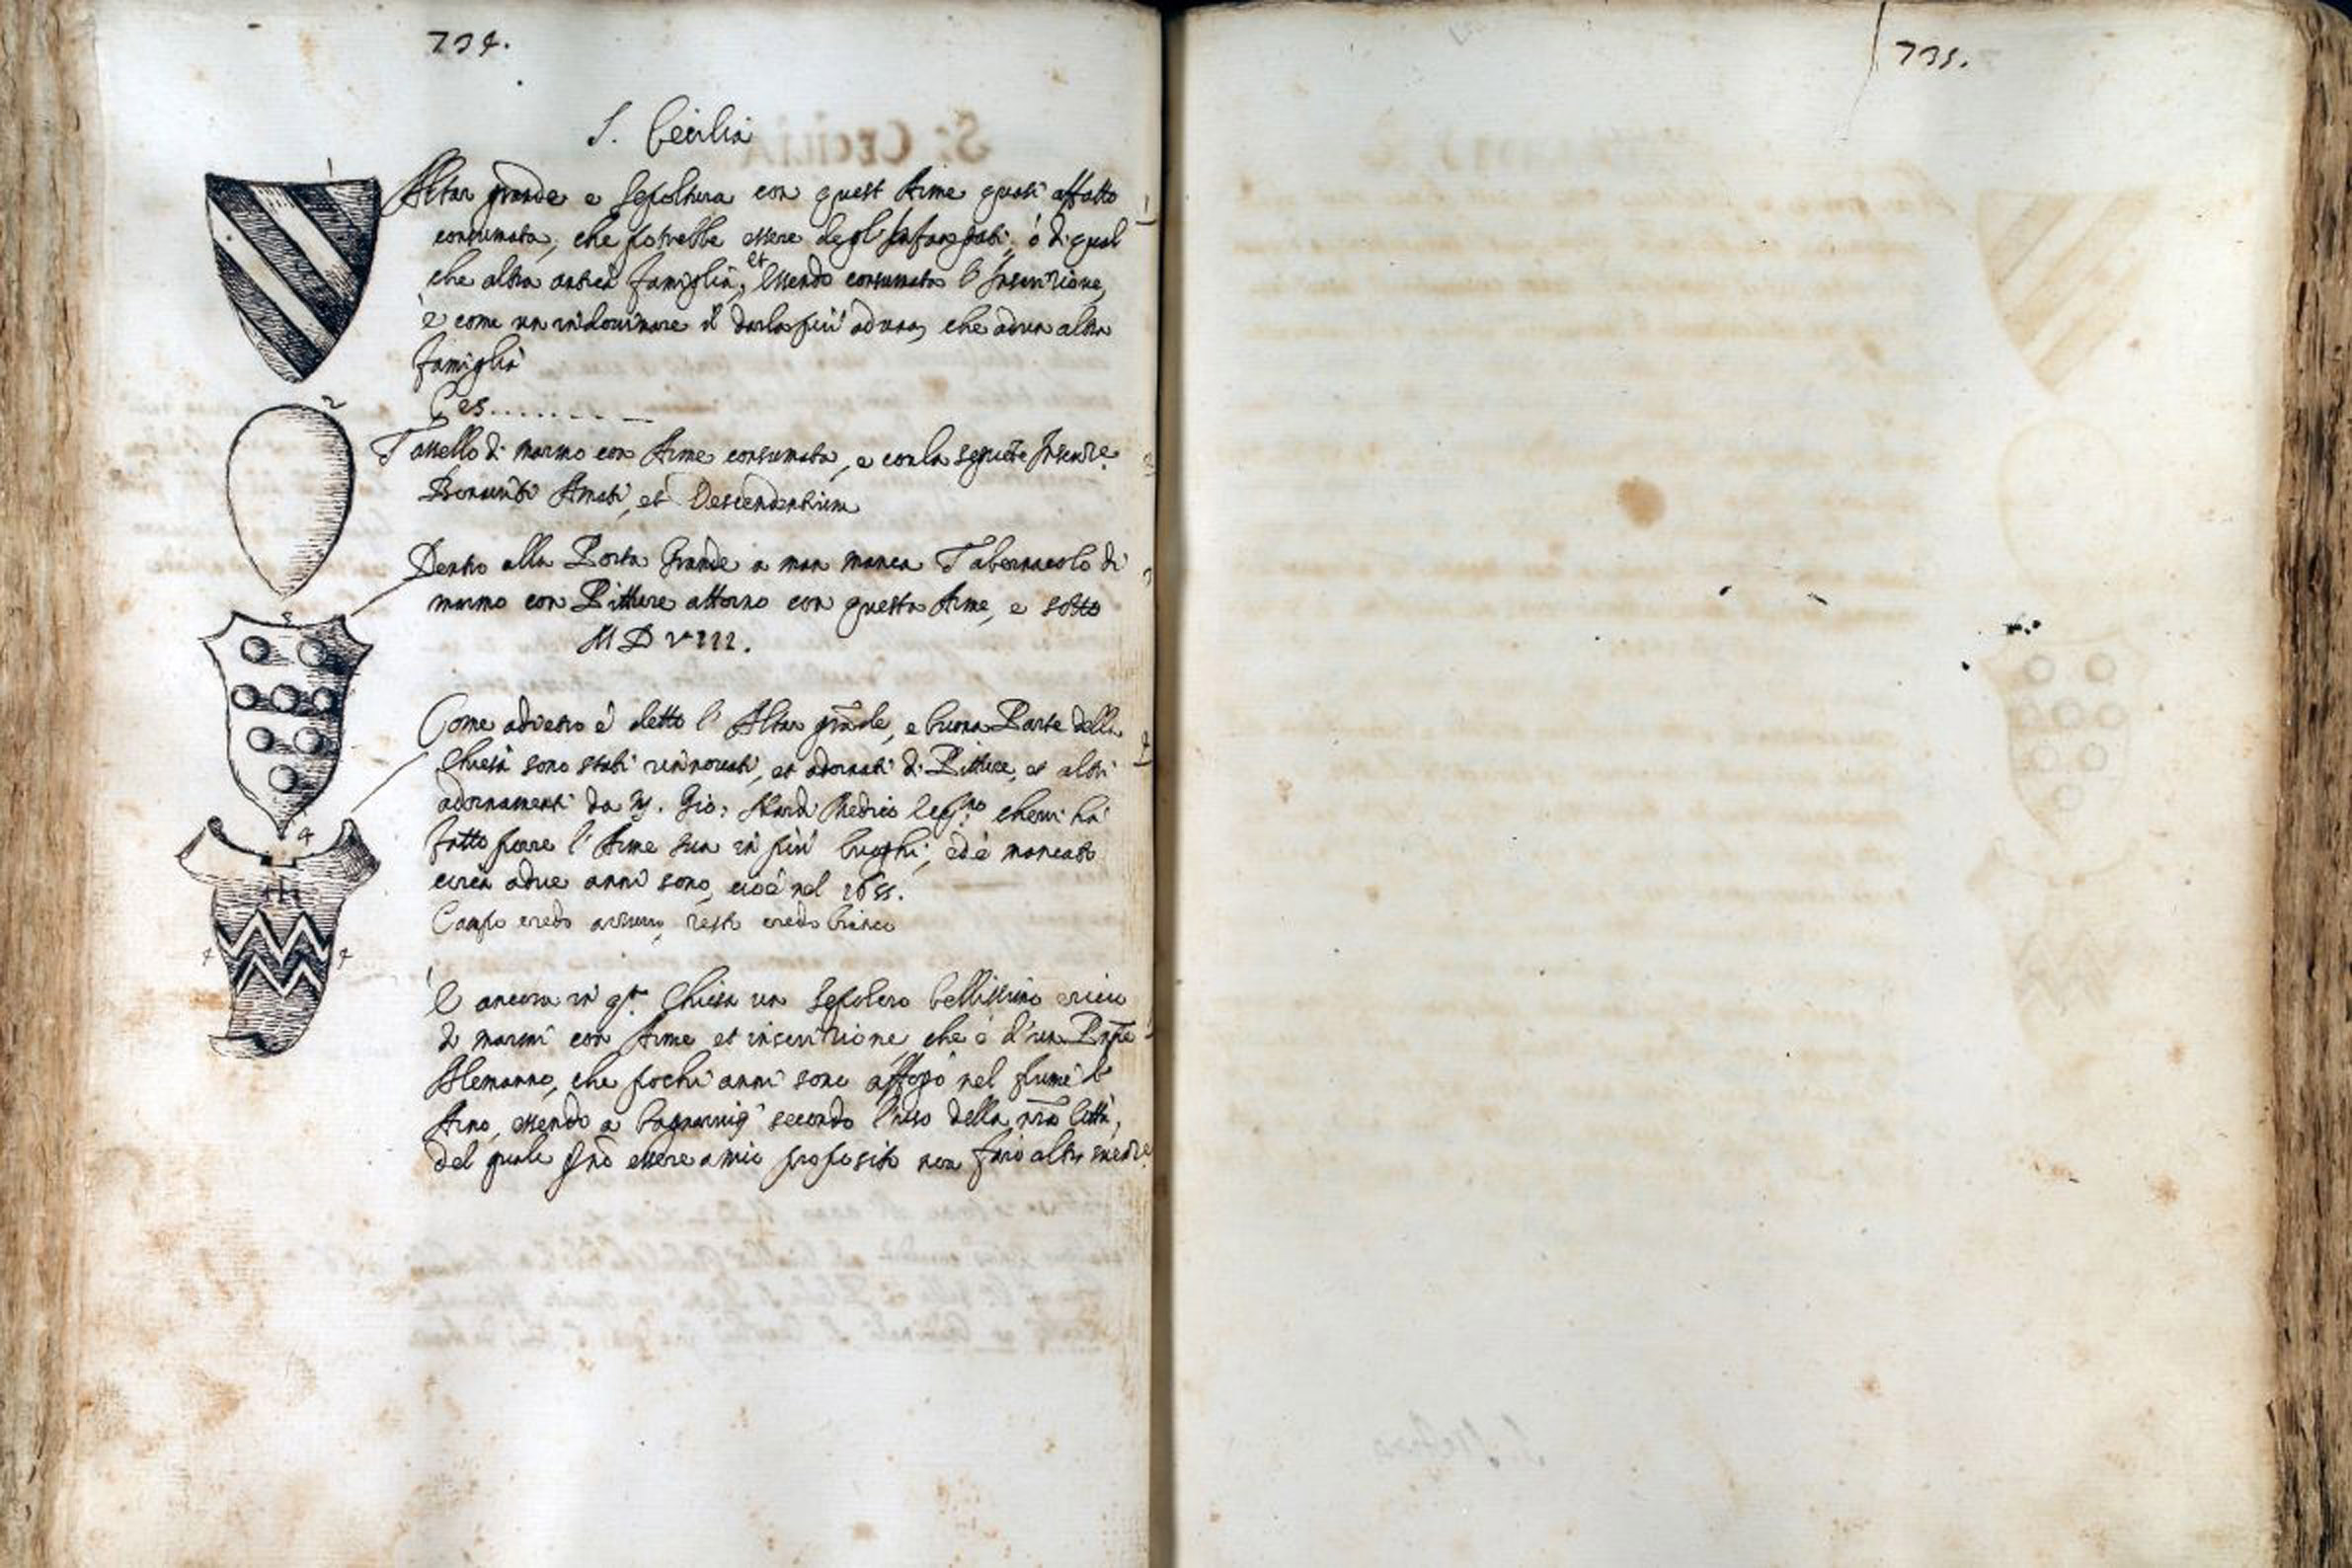 734.
S. Cecilia
1
Altar grande e Sepoltura con quest Arme quasi affatto 1
consumata, che potrebbe essere degl'Infangati, ò di qual
che altra antica famiglia, et essendo consumata l'Inscrizione,
è come un indovinare il darla più ad una, che ad un altra
famiglia
es.........
2
Tassello di marmo con Arme consumata, e con la seguēte Inscrizᵉ. 2
Amati, et Descendentium
Dentro alla Porta Grande a man manca Tabernacolo di 3
marmo con Pitture attorno con questa Arme, e sotto
MDVIII.
3
Come adietro è detto l'Altar grāde, e buona Parte della
Chiesa sono stati rinnovati, et adornati di Pitture, et altri 4
adornamenti da M. Gio: Nardi Medico che vi hà
fatto porre l'Arme sua in più luoghi, ed è mancato
circa a due anni sono, cioè nel 1655.
4
Campo credo azzurro, resto credo bianco
4 4
È ancora in qᵗᵃ. Chiesa un Sepolcro bellissimo e ricco
di marmi con Arme et inscrizione che è d'un Pnp̄e
Alemanno, che pochi anni sono affogò nel fiume d'
Arno, essendo a bagnarvisi secondo l'uso della nr̄a Città,
del quale nō essere a mio proposito non farò altra mēzᵉ.
735.